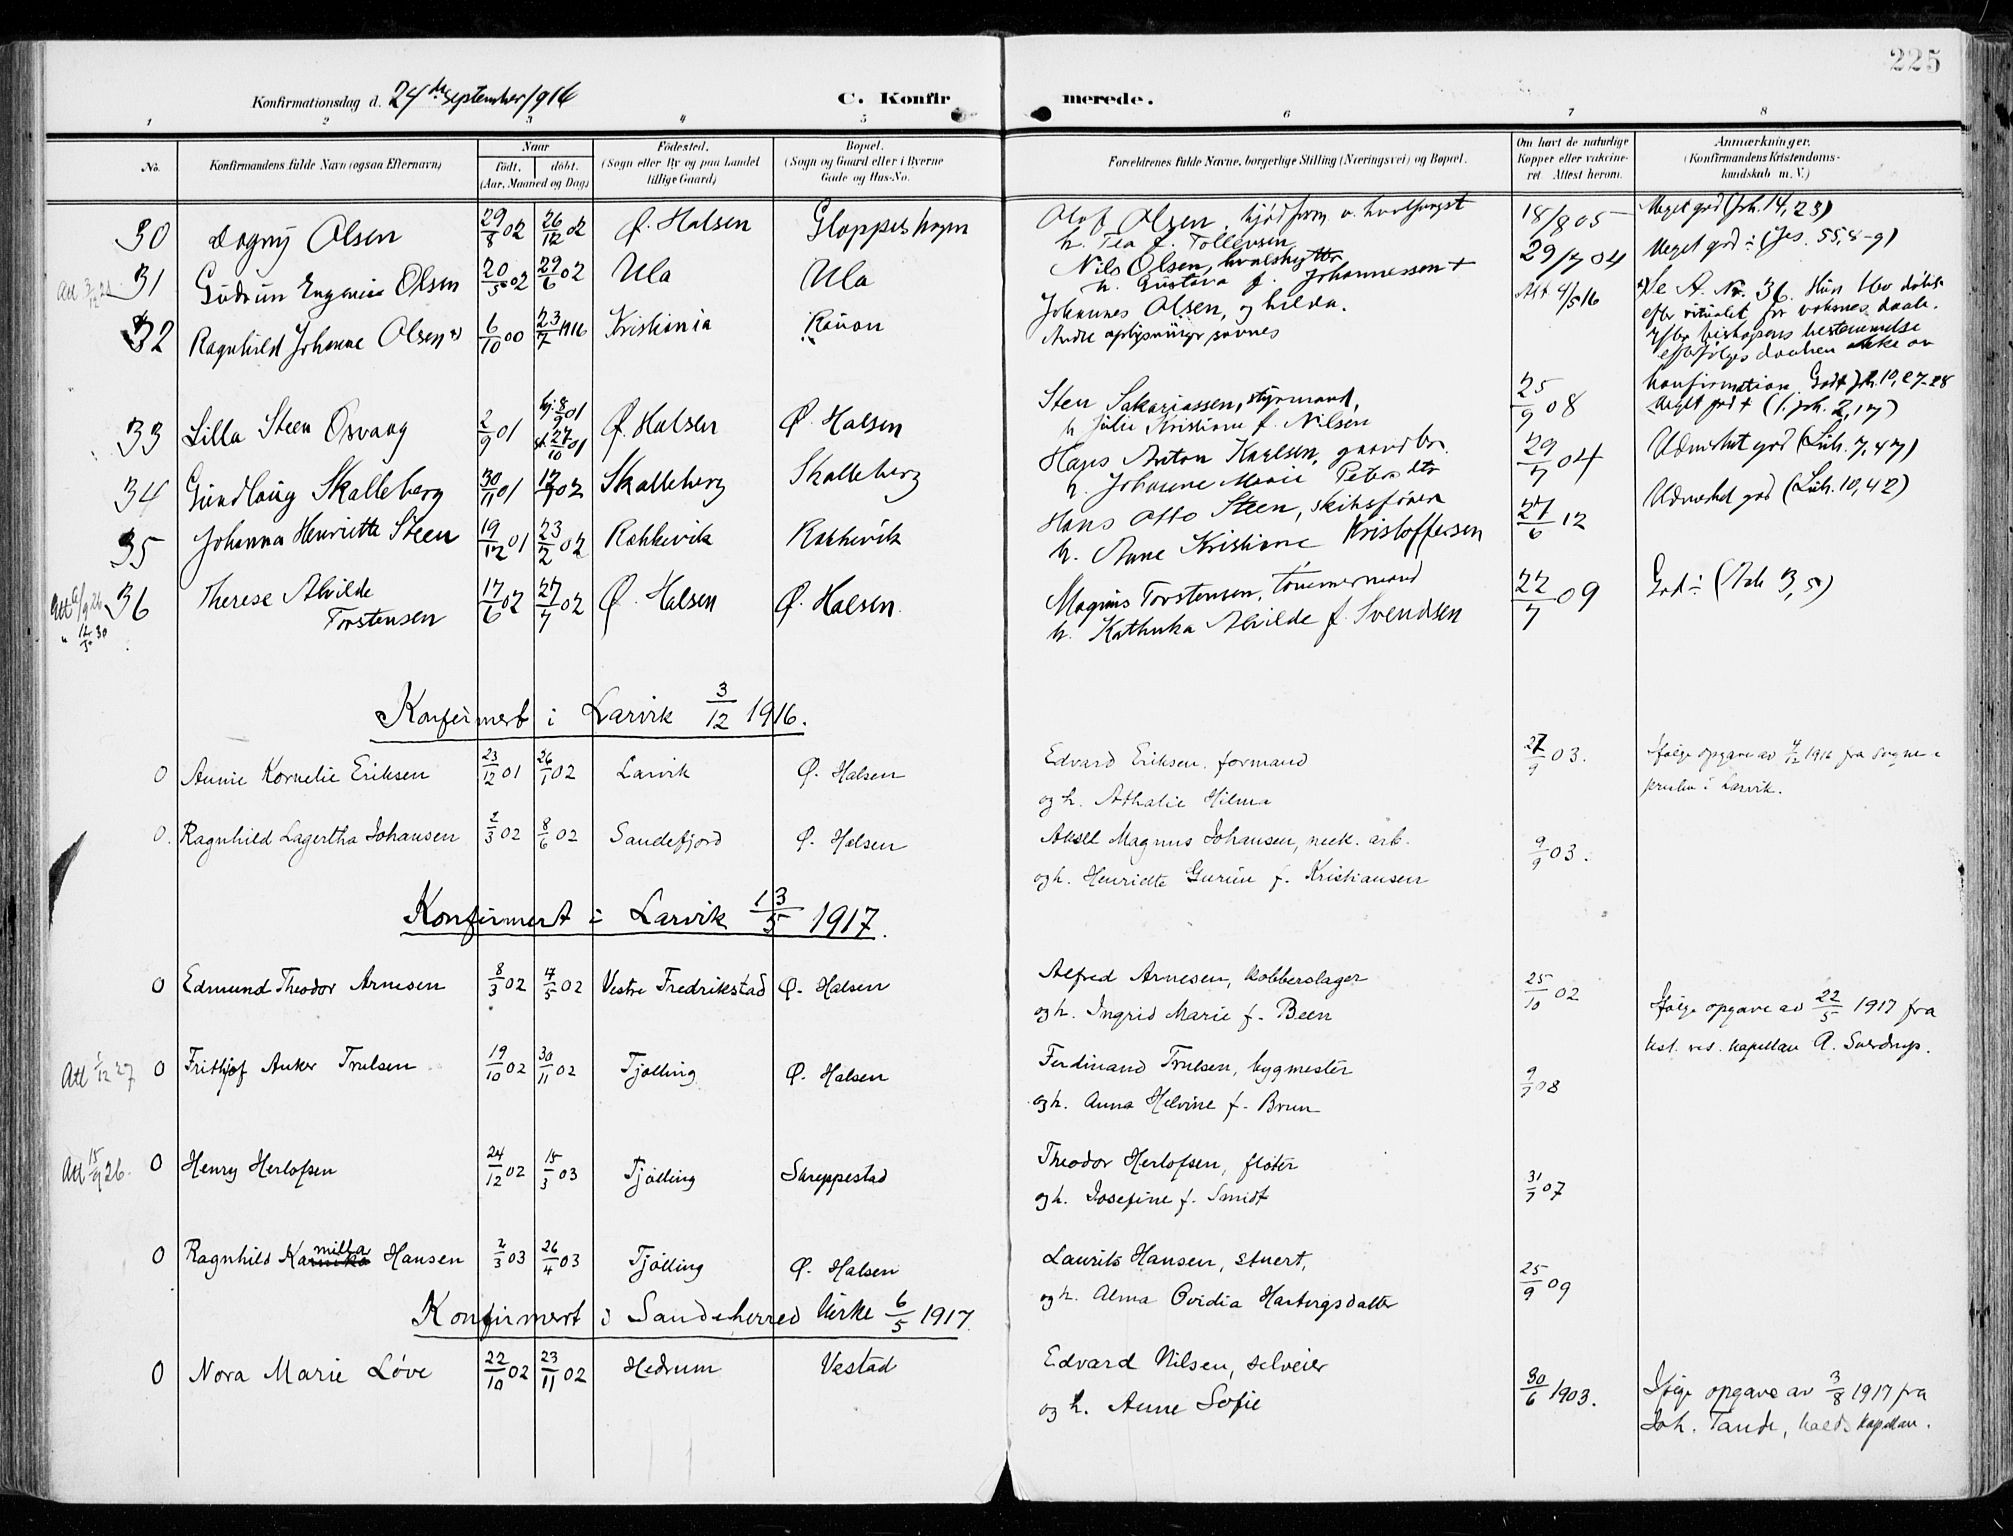 225
Konfirmationsdag d. 24de september 1916 C. Konfirmerede.
1 2 3 4 5 6 7 8
No. Konfirmandens fulde Navn (ogsaa Efternavn) Naar født, døbt. (Aar, Maaned og Dag) Fødested. (Sogn eller By og paa Landet tillige Gaard) Bopæl. (Sogn og Gaard eller i Byerne Gade og Hus-No. Forældrenes fulde Navne, borgerlige Stilling (Næringsvei) og Bopæl. Om havt de naturlige Kopper eller vaccineret. Attest herom. Anmærkninger. (Konfirmandens Kristendomskundskab m. V.)
30 Dagny Olsen 29/8 02 26/12 02 Ø. Halsen Gloppeshagen Olaf Olsen, 18/8 05 Meget god (Joh. 14, 23)
h. Tea f. Tollevsen
31 Gudrun Engenia Olsen 20/5 02 29/6 02 Ula Ula Nils Olsen, 29/7 04 Meget god ÷ (Jes. 55, 8-9)
h. Gustava f. Johannessen +
32 Ragnhild Johanne Olsen x) 6/10 00 23/7 1916 Kristiania Rauan Johannes Olsen, og Hilda. Att 4/5 16 x) Se A. Nr. 36. Hun blev døbt
Andre oplysninger savnes efter ritualet for voksnes daab.
Efter biskopens bestemmelse
efterfølges daaben ikke av
konfirmation Godt Joh. 10, 27-28
33 Lilla Steen Osvaag 2/9 01 hj. 8/9 01 st 27/10 01 Ø. Halsen Ø. Halsen Sten Sakariassen, styrmand, 25/9 08 Meget god + (1. Joh. 2, 17)
h. Julie Kristiane f. Nilsen
34 Gundlaug Skalleberg 30/11 01 Skalleberg Skalleberg Hans Anton Karlsen, gaardbr. 29/7 04 Udmerket god (Luk. 7, 47)
h. Johanne Marie Petersdtr
35 Johanna Henriette Steen 19/12 01 23/2 02 Rakkevik Rakkevik Hans Otto Steen, skibsfører 27/6 12 Udmerket god (Luk. 10, 42)
h. Anne Kristiane Kristoffersen
Att 6/9 26 36 Therese Alvilde Torstensen 17/6 02 27/7 02 Ø. Halsen Ø. Halsen. Magnus Torstensen, tømmermand 22/7 09 God ÷ (3, 5)
" 12/5 30 h. Kathinka Alvilde f. Svendsen
Konfirmert i Larvik 3/12 1916.
0 Annie Kornelie Eriksen 23/12 01 26/1 02 Larvik Ø. Halsen Edvard Eriksen, formand 27/9 03. Ifølge opgave av 4/12 1916 fra Sogne-
og h. Athalie Hilma presten i Larvik.
0. Ragnhild Lagertha Johansen 2/3 02 8/6 02 Sandefjord Ø. Halsen Aksel Magnus Johansen, mek. arb. 9/9 03.
og h. Henriette Gurine f. Kristiansen
Konfirmert i Larvik 13/5 1917.
0 Edmund Theodor Arnesen 8/3 02 4/5 02 Vestre Fredrikstad Ø. Halsen Alfred Arnesen, kobberslager 25/10 02 Ifølge opgave av 22/5 1917 fra
og h. Ingrid Marie f. Been kst. res. kapellan A. Sverdrup.
Att 1/12 27 0 Frithjof Anker Trulsen 19/10 02 30/11 02 Tjølling Ø. Halsen Ferdinand Trulsen, bygmester 9/7 08
og h. Anna Helvine f. Brun
Att 15/9 26. 0 Henry Herlofsen 24/12 02 15/3 03 Tjølling Skreppestad Theodor Herlofsen, fløter 31/7 07
og h. Josefine f. Smidt
0 Ragnhild Kamilla Hansen 2/3 03 26/4 03 Tjølling Ø. Halsen Laurits Hansen, stuert, 25/9 09
og h. Alma Ovidia Hartvigsdatter
Konfirmert i Sandeherred kirke 6/5 1917.
0 Nora Marie Løve 22/10 02 23/11 02 Hedrum Vestad Edvard Nilsen, selveier 30/6 1903. Ifølge opgave av 3/8 1917 fra
og h. Anne Sofie Joh. Tande, kaldskapellan.